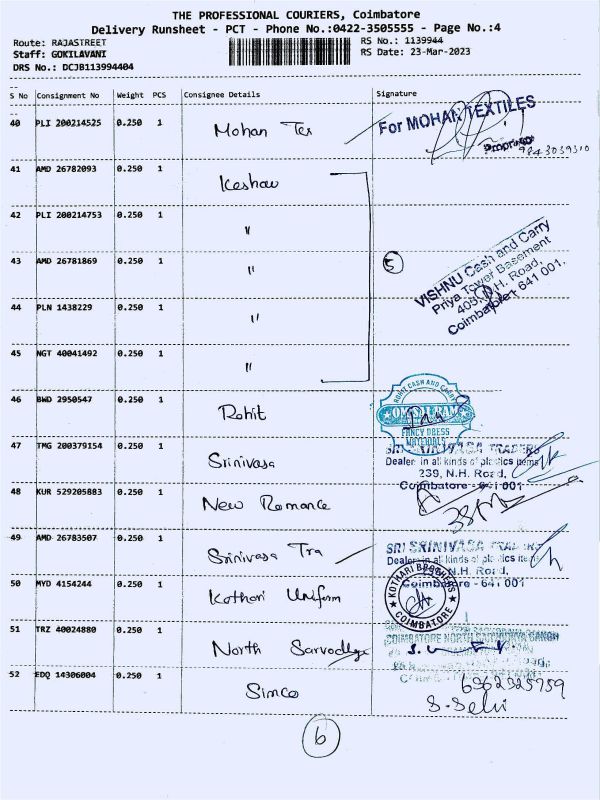 THE PROFESSIONAL COURIERS, Coimbatore
Delivery Runsheet - PCT - Phone No.:0422-3505555 - Page No.:4
Route: RAJASTREET
RS No.: 1139944
Staff: GOKILAVANI
RS Date: 23-Mar-2023
DRS No.: DCJB113994404
S No Consignment No Weight PCS Consignee Details Signature
40 PLI 200214525 0.250 1 Mohan Tex
For MOHAN TEXTILES
Proprietor
9843039310
41 AMD 26782093 0.250 1 Keshav
42 PLI 200214753 0.250 1 "
43 AMD 26781869 0.250 1 "
5
VISHNU Cash and Carry
Priya Tower Basement
405, N.H. Road,
Coimbatore - 641 001.
44 PLN 1438229 0.250 1 "
45 NGT 40041492 0.250 1 "
46 BWD 2950547 0.250 1 Rohit
ROHIT CASH AND CARRY
FANCY DRESS
MATERIALS
47 TMG 200379154 0.250 1 Srinivasa
SRI SRINIVASA TRADERS
Dealer in all kinds of plastics items
239, N.H. Road,
Coimbatore - 641 001
48 KUR 529205883 0.250 1 New Romance
49 AMD 26783507 0.250 1 Srinivasa Tra
SRI SRINIVASA TRADERS
Dealer in all kinds of plastics items
N.H. Road,
Coimbatore - 641 001
50 MYD 4154244 0.250 1 Kothari Uniform
KOTHARI BROTHERS
COIMBATORE
51 TRZ 40024880 0.250 1 North Sarvodhya
COIMBATORE NORTH SARVODAYA SANGH
52 EDQ 14306004 0.250 1 Simco
6362325759
S. Selvi
6